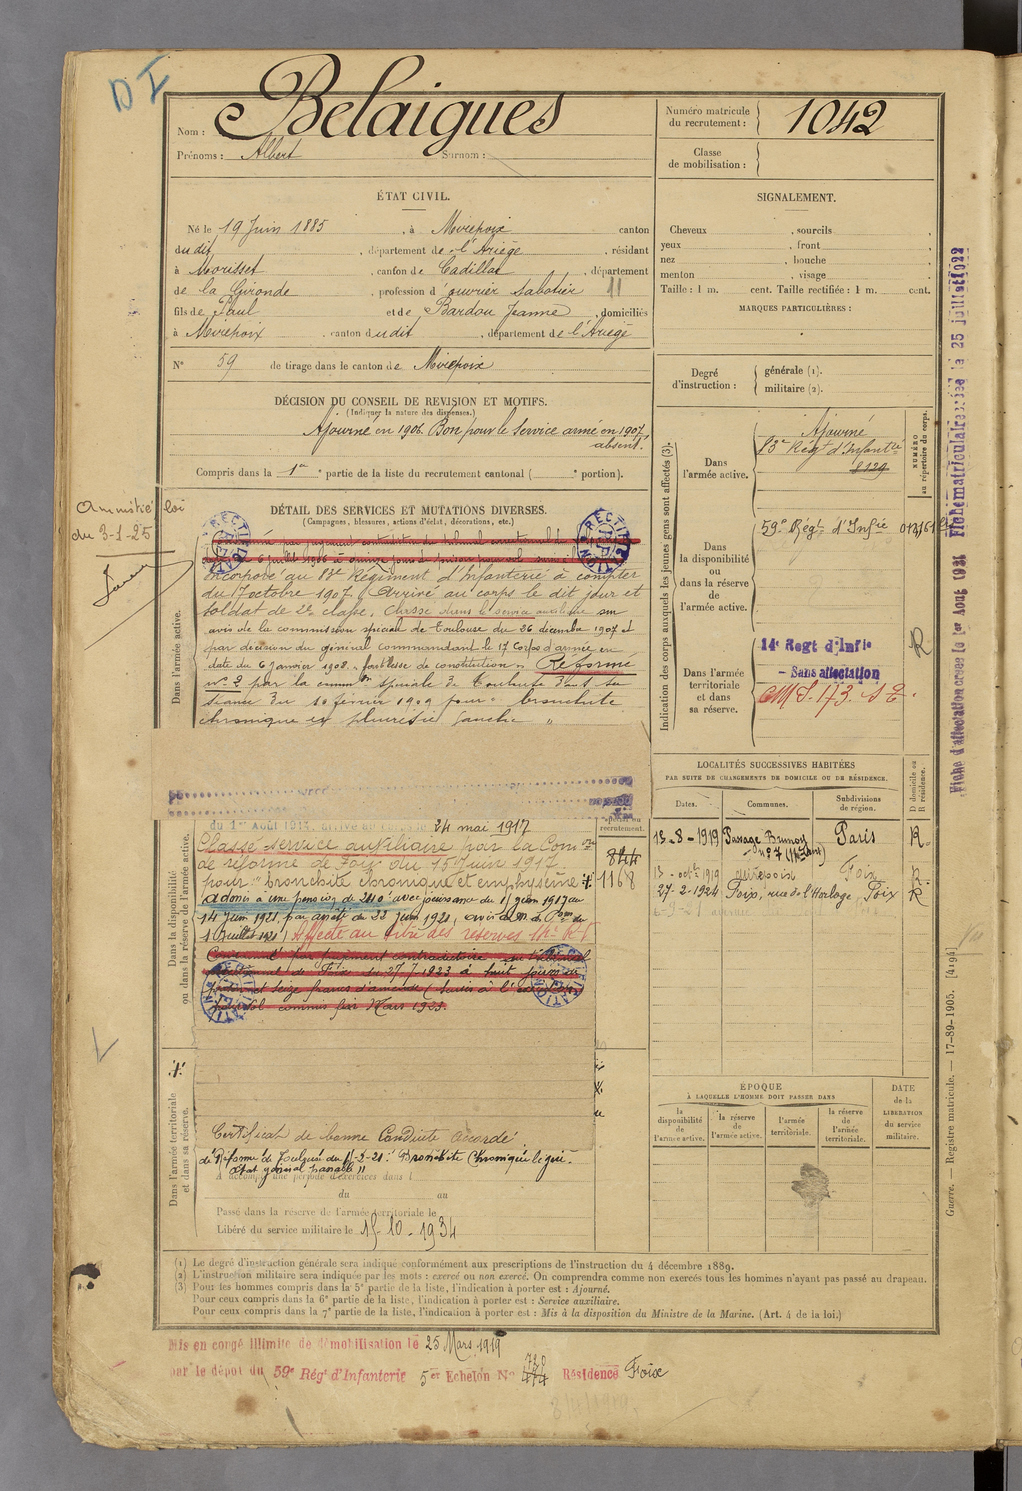 D I
Nom : Belaigues
Prénoms : Albert Surnom :
Numéro matricule du recrutement : 1042
Classe de mobilisation :
ÉTAT CIVIL.
Né le 19 Juin 1885, à Mirepoix canton
dudit, département de l'Ariège, résidant
à Mourisset, canton de Cadillac, département
de la Gironde, profession d'ouvrier sabotier 11
fils de Paul et de Bardou Jeanne, domiciliés
à Mirepoix, canton dudit, département de l'Ariège
N° 59 de tirage dans le canton de Mirepoix
SIGNALEMENT.
Cheveux , sourcils ,
yeux , front ,
nez , bouche ,
menton , visage ,
Taille : 1 m. cent. Taille rectifiée : 1 m. cent.
MARQUES PARTICULIÈRES :
Degré d'instruction : générale (1).
militaire (2).
DÉCISION DU CONSEIL DE REVISION ET MOTIFS.
(Indiquer la nature des dispenses.)
Ajourné en 1906. Bon pour le Service armé en 1907,
absent.
Compris dans la 1re partie de la liste du recrutement cantonal ( ° portion).
DÉTAIL DES SERVICES ET MUTATIONS DIVERSES.
(Campagnes, blessures, actions d'éclat, décorations, etc.)
Amnistié loi
du 3-1-25
Dans l'armée active.
RECTIFICATION
par jugement contradictoire du tribunal correctionnel de
6 juillet 1906 à quinze jours de prison pour vol
incorporé au 83e Régiment d'Infanterie à compter
du 17 octobre 1907. Arrivé au corps le dit jour et
soldat de 2e classe. Classé dans le service auxiliaire sur
avis de la commission spéciale de Toulouse du 26 décembre 1907 et
par décision du général commandant le 17 Corps d'armée en
date du 6 janvier 1908 "faiblesse de constitution". Réformé
n° 2 par la comm on spéciale de Toulouse dans sa
séance du 10 février 1909 pour "bronchite
chronique et pleurésie gauche"
Indication des corps auxquels les jeunes gens sont affectés (3).
NUMÉRO au répertoire du corps.
Dans l'armée active.
Ajourné
83e Régt d'Infantie
8929
Dans la disponibilité ou dans la réserve de l'armée active.
59e Régt d'Infie
Dans l'armée territoriale et dans sa réserve.
14e Regt d'Infie
- Sans affectation
R
Fiche d'affectation créée le 1er Aout 1931 Fiche matriculaire créée le 25 juillet 1922
Dans la disponibilité ou dans la réserve de l'armée active.
24 mai 1917
Classé service auxiliaire par la Com on
de réforme de Foix du 15 Juin 1917
pour "bronchite chronique et emphysème"
844
1168
14 Juin 1921, par arrêté du 22 juin 1921, avis
Affecté au titre des réserves
Condamné par jugement contradictoire du Tribunal
correctionnel de Foix du 27-7-1923 à huit jours de
prison et seize francs d'amende
pour vol commis fin Mars 1923.
RECTIFICATION
LOCALITÉS SUCCESSIVES HABITÉES
PAR SUITE DE CHANGEMENTS DE DOMICILE OU DE RÉSIDENCE.
Dates. Communes. Subdivisions de région. D domicile ou R résidence.
13-8-1919 Passage Brunoy n° 7 Paris R
13-octe 1919 Mirepoix Foix R
27-2-1924 Foix, rue de l'Horloge, Foix R
ÉPOQUE
À LAQUELLE L'HOMME DOIT PASSER DANS
la disponibilité de l'armée active.
la réserve de l'armée active.
l'armée territoriale.
la réserve de l'armée territoriale.
DATE de la LIBÉRATION du service militaire.
Dans l'armée territoriale et dans sa réserve.
Certificat de bonne Conduite accordé
Bronchite Chronique légère.
État général passable"
A accompli une période d'exercices dans l
du au
Passé dans la réserve de l'armée territoriale le
Libéré du service militaire le 15-10-1934
(1) Le degré d'instruction générale sera indiqué conformément aux prescriptions de l'instruction du 4 décembre 1889.
(2) L'instruction militaire sera indiquée par les mots : exercé ou non exercé. On comprendra comme non exercés tous les hommes n'ayant pas passé au drapeau.
(3) Pour les hommes compris dans la 5e partie de la liste, l'indication à porter est : Ajourné.
Pour ceux compris dans la 6e partie de la liste, l'indication à porter est : Service auxiliaire.
Pour ceux compris dans la 7e partie de la liste, l'indication à porter est : Mis à la disposition du Ministre de la Marine. (Art. 4 de la loi.)
Guerre. — Registre matricule. — 17-89-1905. [4194]
Mis en congé illimité de démobilisation le 25 Mars 1919
par le dépôt du 59e Rég d'Infanterie 5er Echelon N° 728 Résidence Foix